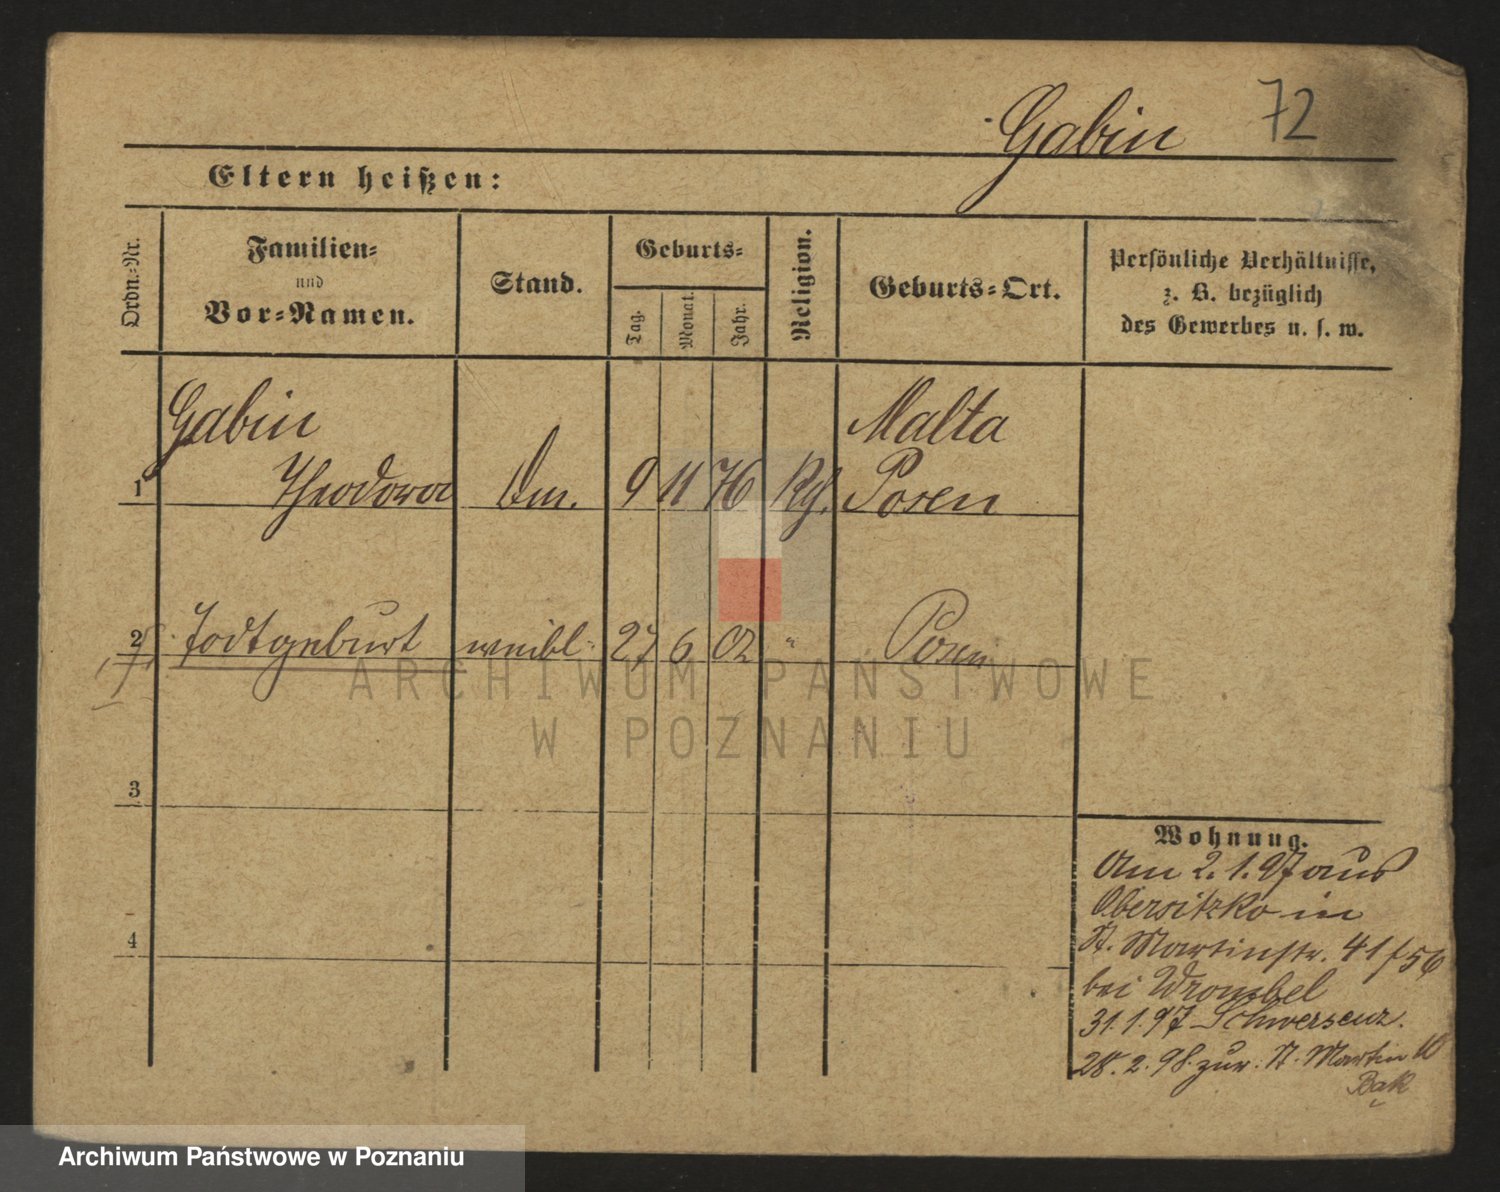 Gabin 72
Eltern heißen:
Ordn.=Nr.
Familien=
und
Vor=Namen.
Stand.
Geburts=
Tag.
Monat.
Jahr.
Religion.
Geburts=Ort.
Persönliche Verhältnisse,
z. B. bezüglich
des Gewerbes u. s. w.
Gabin Malta
1 Theodora 9 11 76 Posen
2 Todtgeburt weibl. 27 6 02 " Posen
3
4
Wohnung.
Am 2. 1. 97 aus
Obersitzko in
St. Martinstr. 41/56
bei
31. 1. 97 Schwersenz.
28. 2. 98. zur. St. Martin
Bak
ARCHIWUM PAŃSTWOWE
W POZNANIU
Archiwum Państwowe w Poznaniu